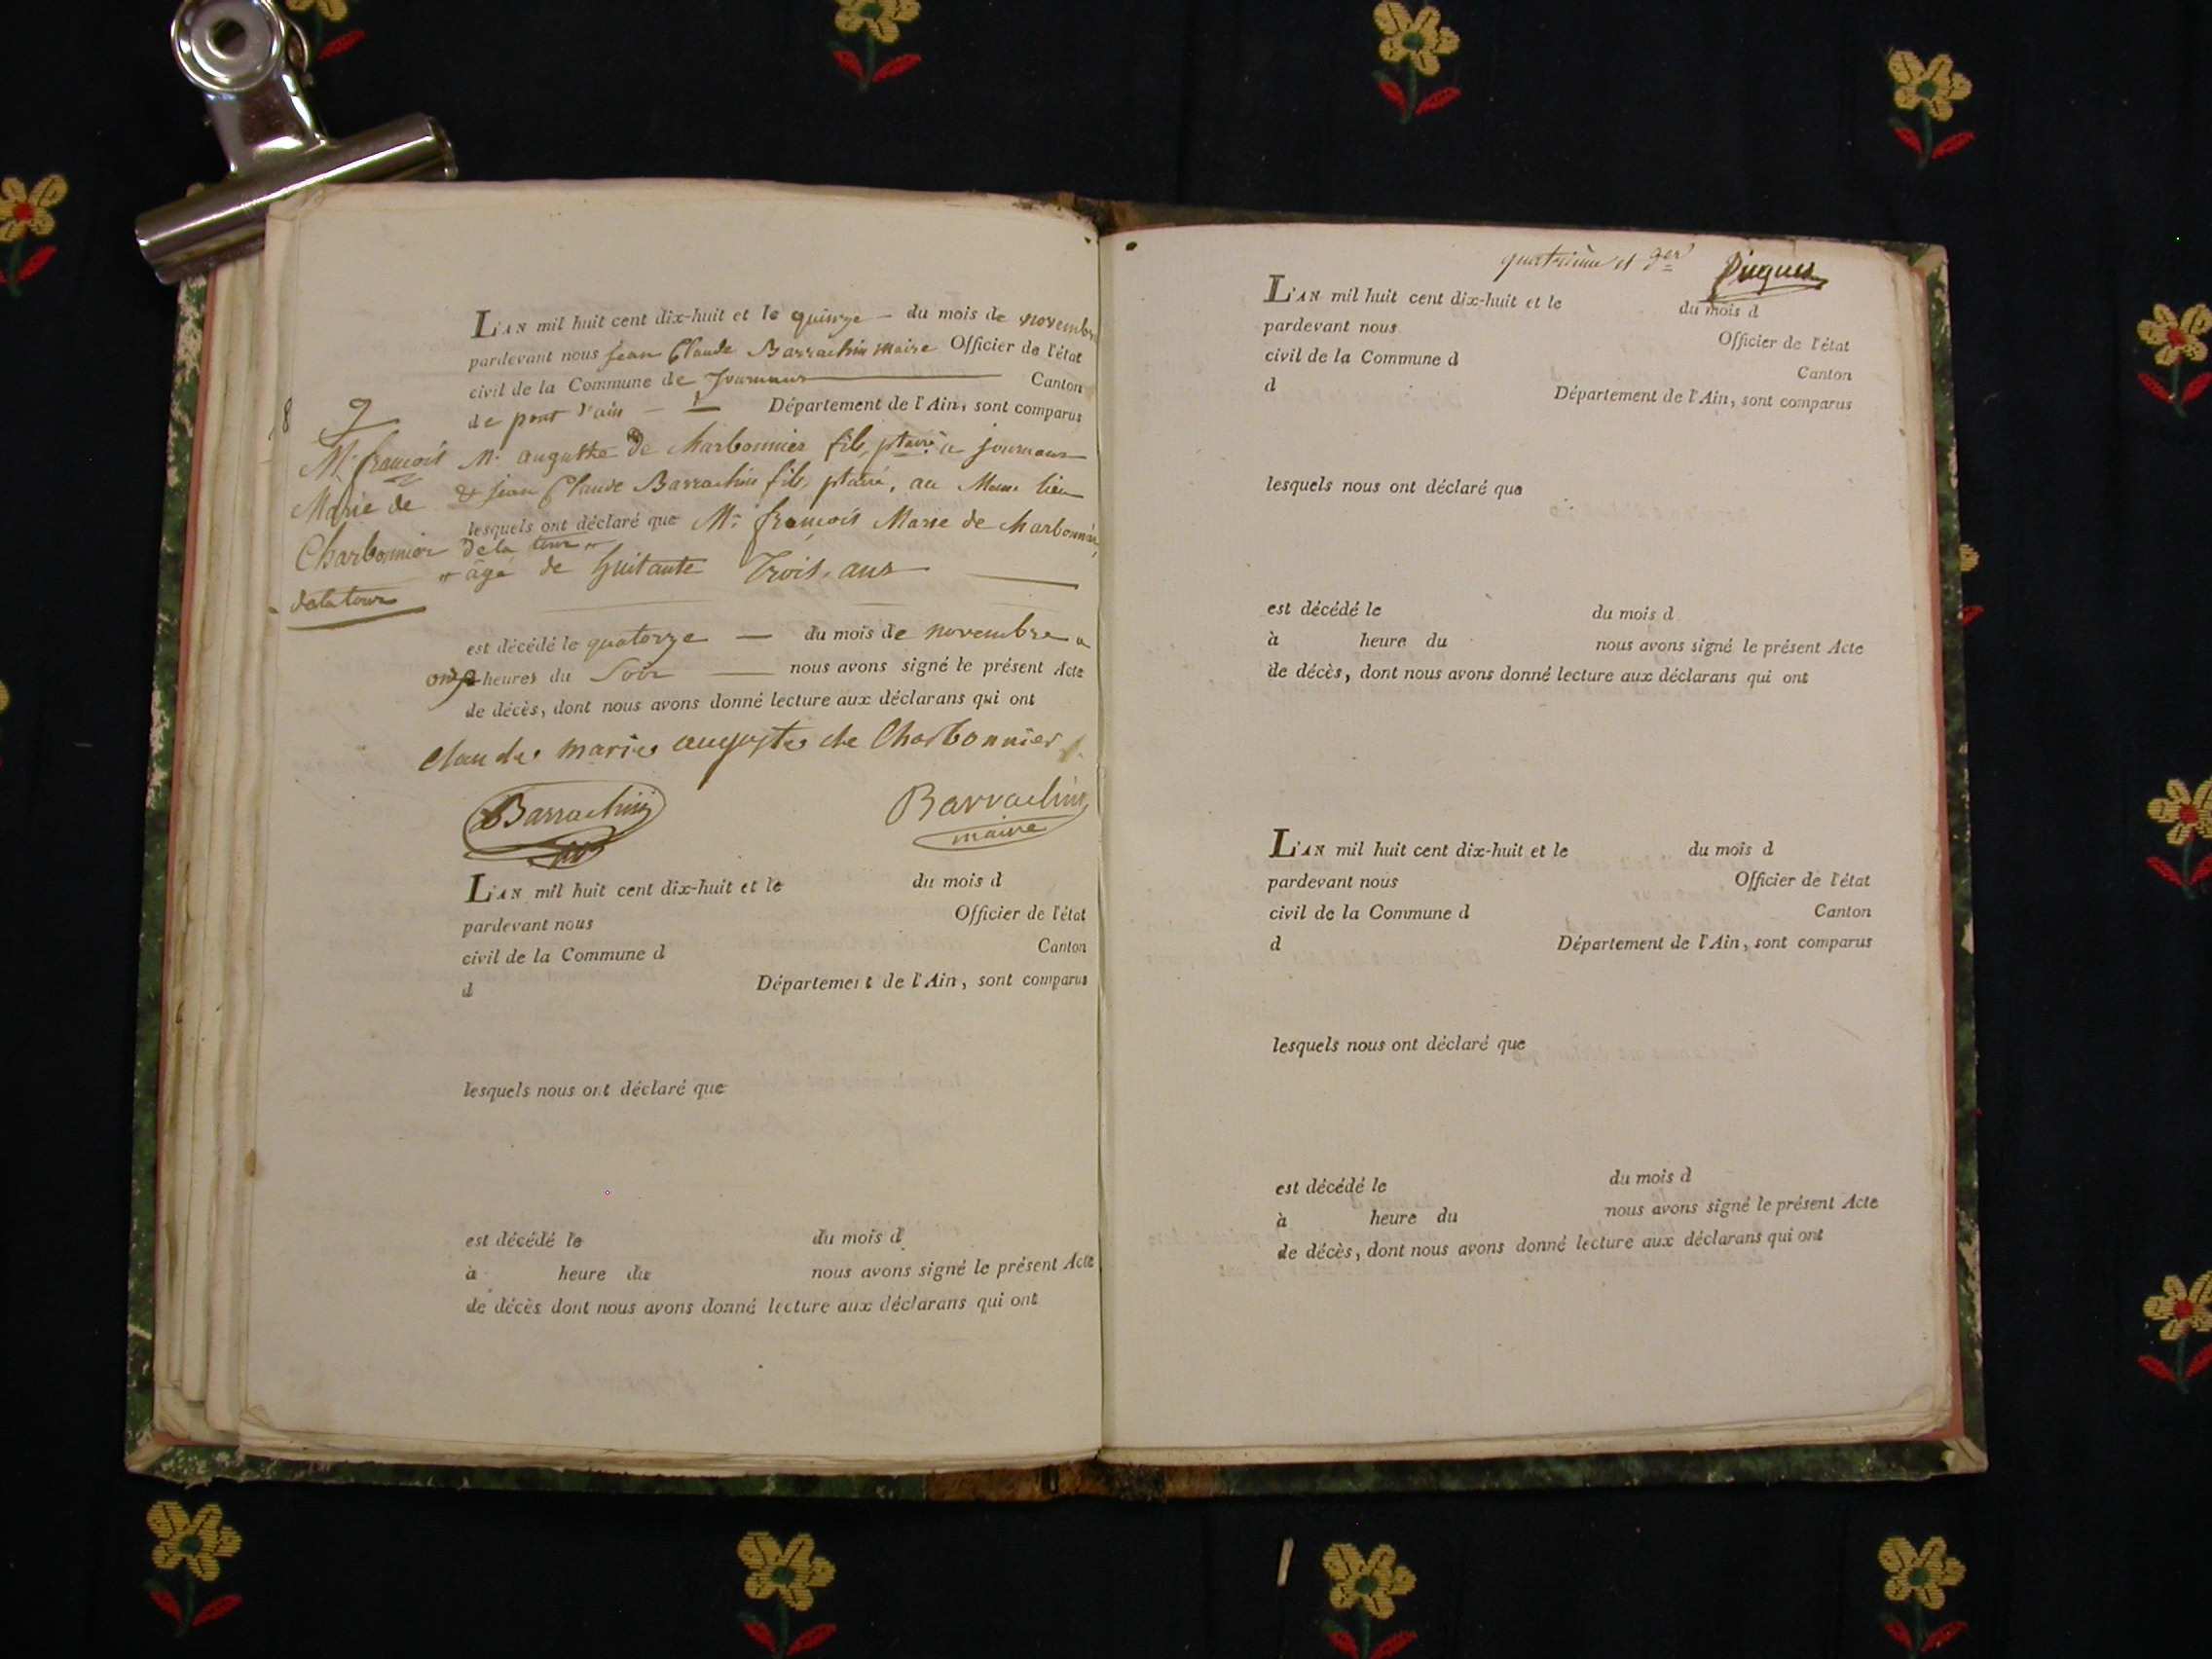 L'AN mil huit cent dix-huit et le quinze – du mois de novembre
pardevant nous jean Claude Barrachin maire Officier de l'état
civil de la Commune de Journans Canton
de pont d'ain — Département de l'Ain, sont comparus
8 9
Mr. françois
Marie de
Charbonnier
delatour
Mr. auguste de Charbonnier fils ptaire a journans
& jean Claude Barrachin fils ptaire, au Meme lieu
lesquels ont déclaré que Mr. françois Marie de Charbonnier
dela tour
âgé de huitante Trois ans
est décédé le quatorze — du mois de novembre a
onze heures du Soir — nous avons signé le présent Acte
de décès, dont nous avons donné lecture aux déclarans qui ont
Claude marie auguste de Charbonnier
Barrachin Barrachin
maire
L'AN mil huit cent dix-huit et le du mois d
pardevant nous Officier de l'état
civil de la Commune d Canton
d Département de l'Ain, sont comparus
lesquels nous ont déclaré que
est décédé le du mois d
à heure du nous avons signé le présent Acte
de décès dont nous avons donné lecture aux déclarans qui ont
quatrième et der
L'AN mil huit cent dix-huit et le du mois d
pardevant nous Officier de l'état
civil de la Commune d Canton
d Département de l'Ain, sont comparus
lesquels nous ont déclaré que
est décédé le du mois d
à heure du nous avons signé le présent Acte
de décès, dont nous avons donné lecture aux déclarans qui ont
L'AN mil huit cent dix-huit et le du mois d
pardevant nous Officier de l'état
civil de la Commune d Canton
d Département de l'Ain, sont comparus
lesquels nous ont déclaré que
est décédé le du mois d
à heure du nous avons signé le présent Acte
de décès, dont nous avons donné lecture aux déclarans qui ont